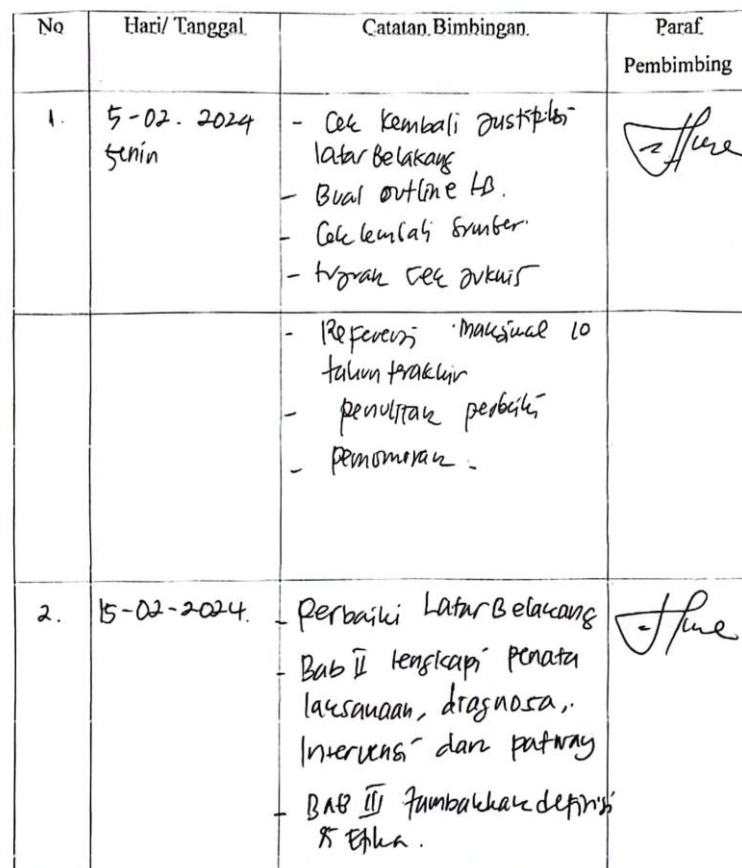 No Hari/ Tanggal Catatan Bimbingan Paraf
Pembimbing
1. 5-02. 2024 - Cek Kembali Justifikasi
Senin latar Belakang
- Buat outline LB.
- Cek kembali Sumber.
- tujuan cek juknis
- Referensi maksimal 10
tahun terakhir
- penulisan perbaiki
- penomoran.
2. 15-02-2024. - Perbaiki Latar Belakang
- Bab II lengkapi penata
laksanaan, diagnosa,
Intervensi dan patway
- BAB III tambahkan definisi
& Etika.